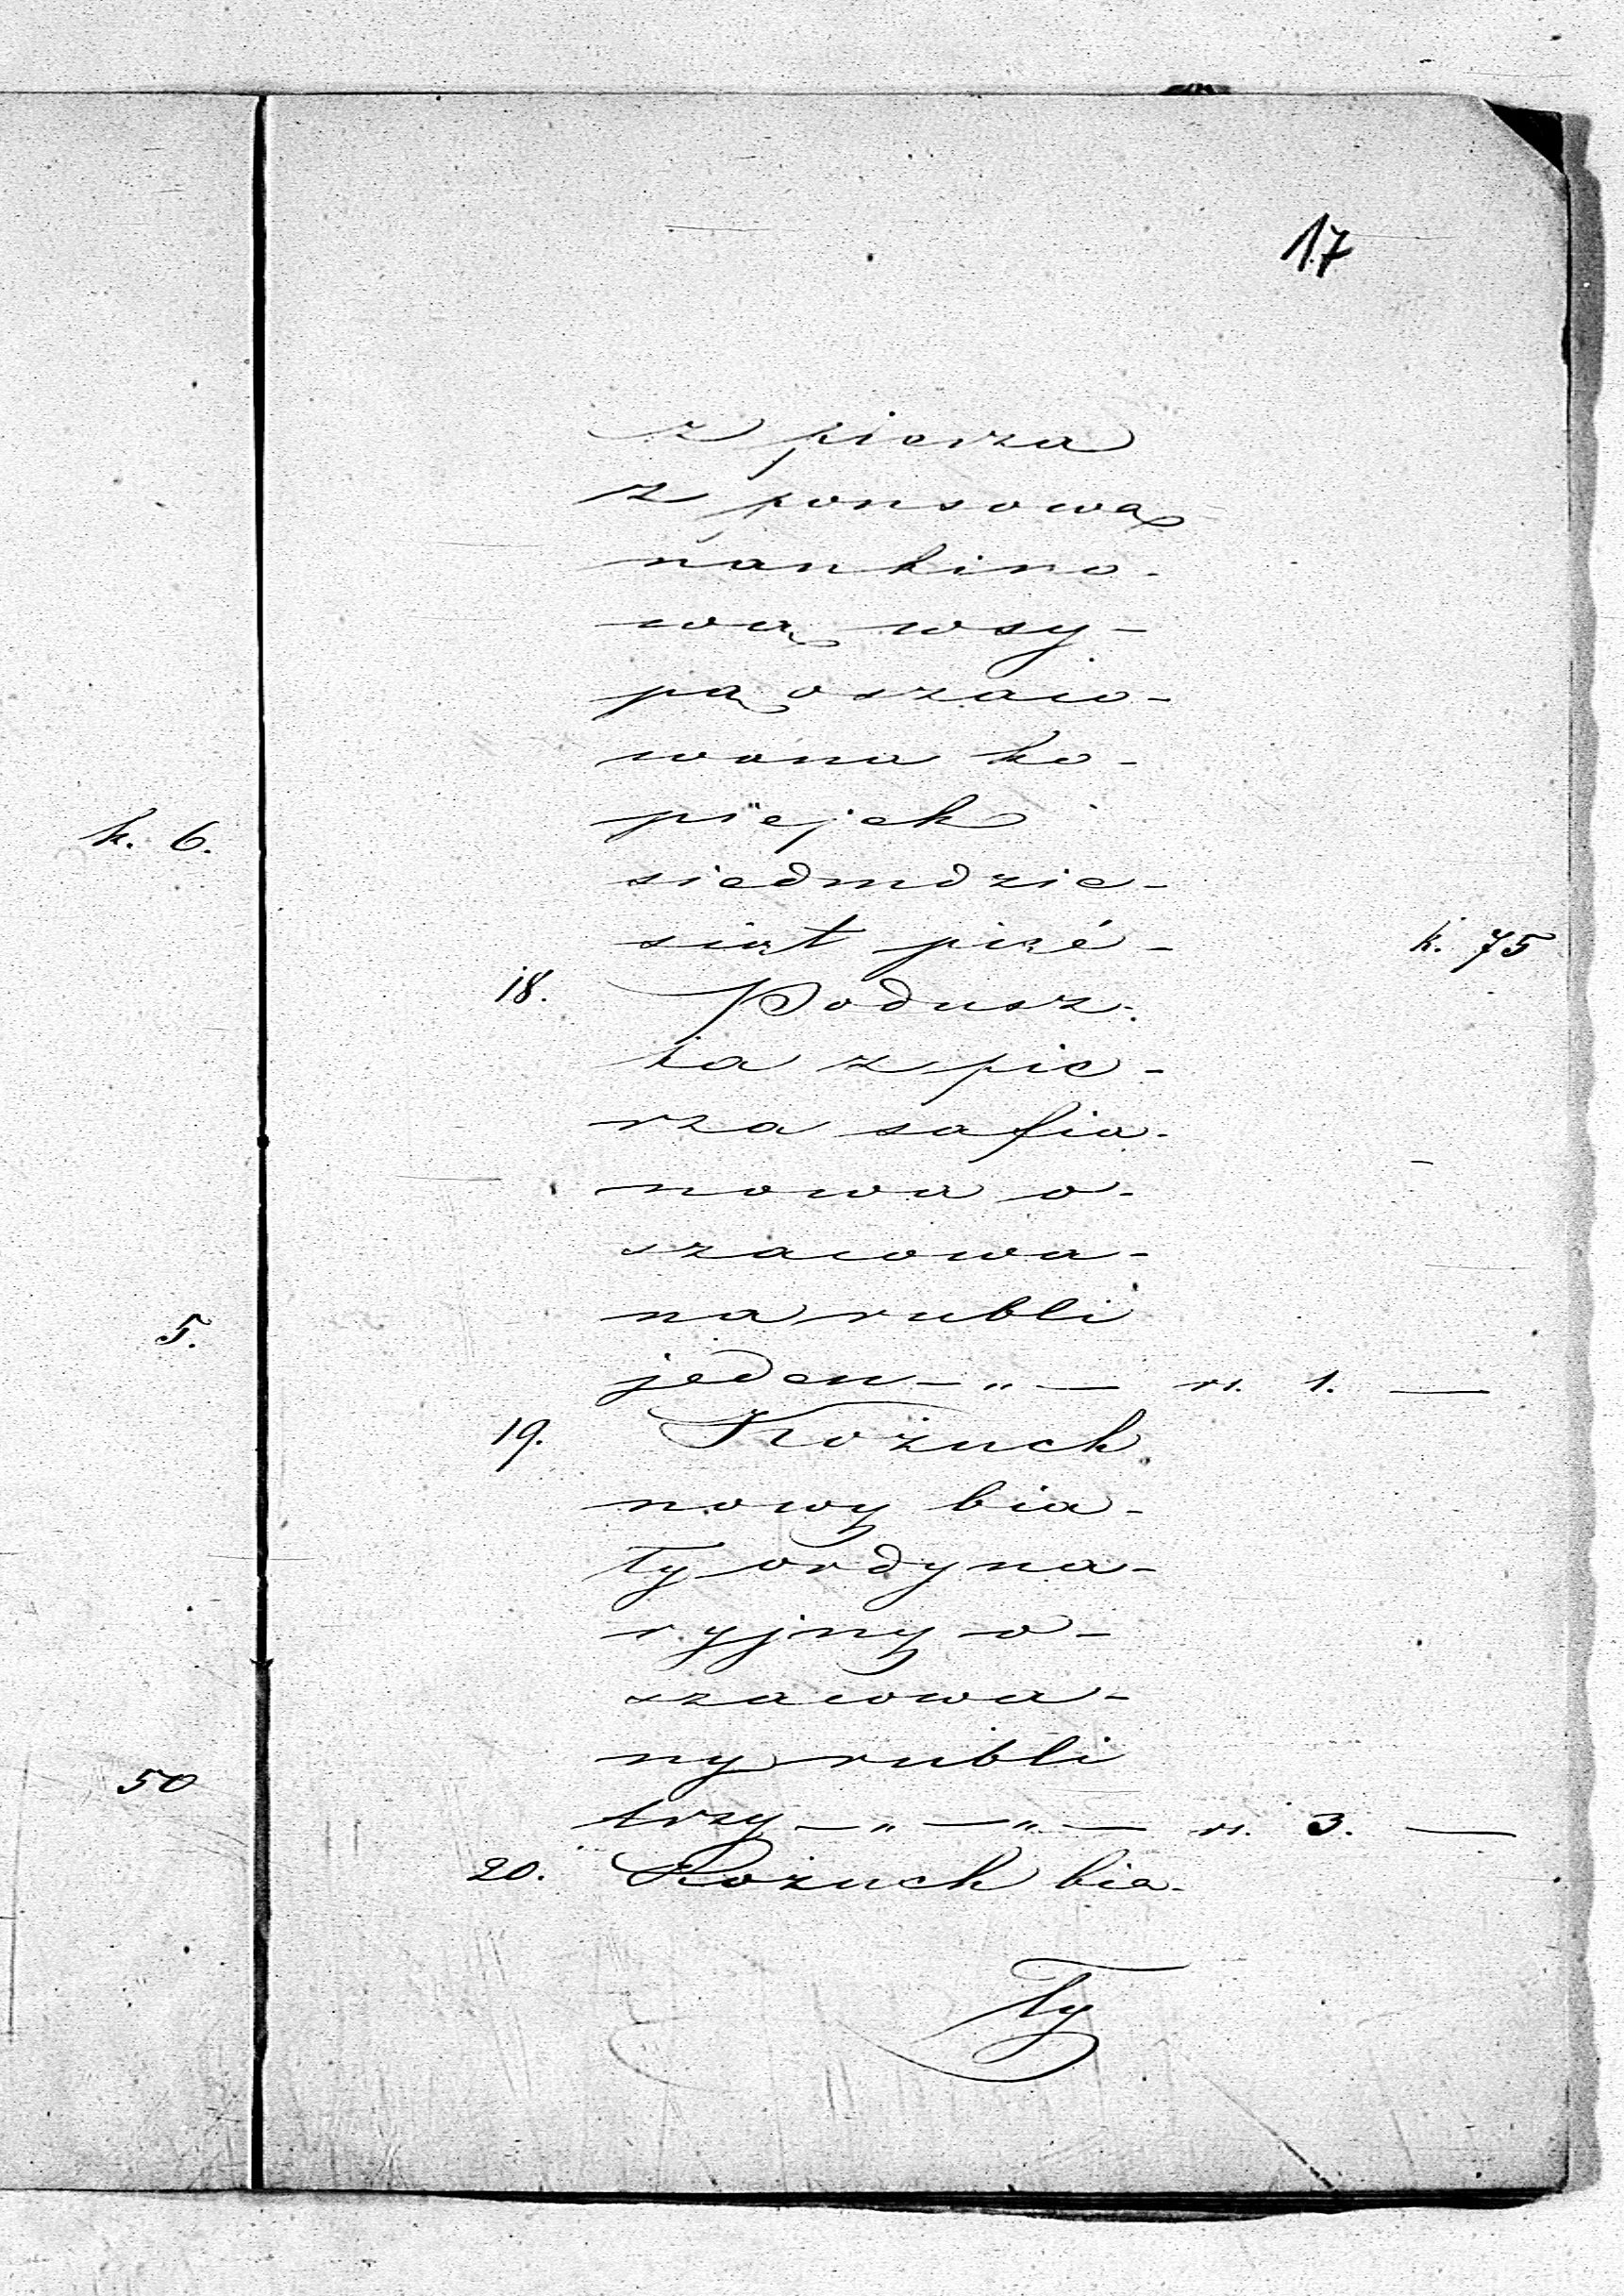 17
z pierza
z ponsową
nankino-
wą wsy-
pą oszaco-
wana ko-
piejek
siedmdzie-
siąt pięć - k. 75
18. Podusz-
ka z pie-
rza safia-
nowa o-
szacowa-
na rubli
jeden — „ — rs. 1. —
19. Kożuch
nowy bia-
ły ordyna-
ryjny o-
szacowa-
ny rubli
trzy — „ — „ — rs. 3. —
20. Kożuch bia-
ły
k. 6.
5.
50